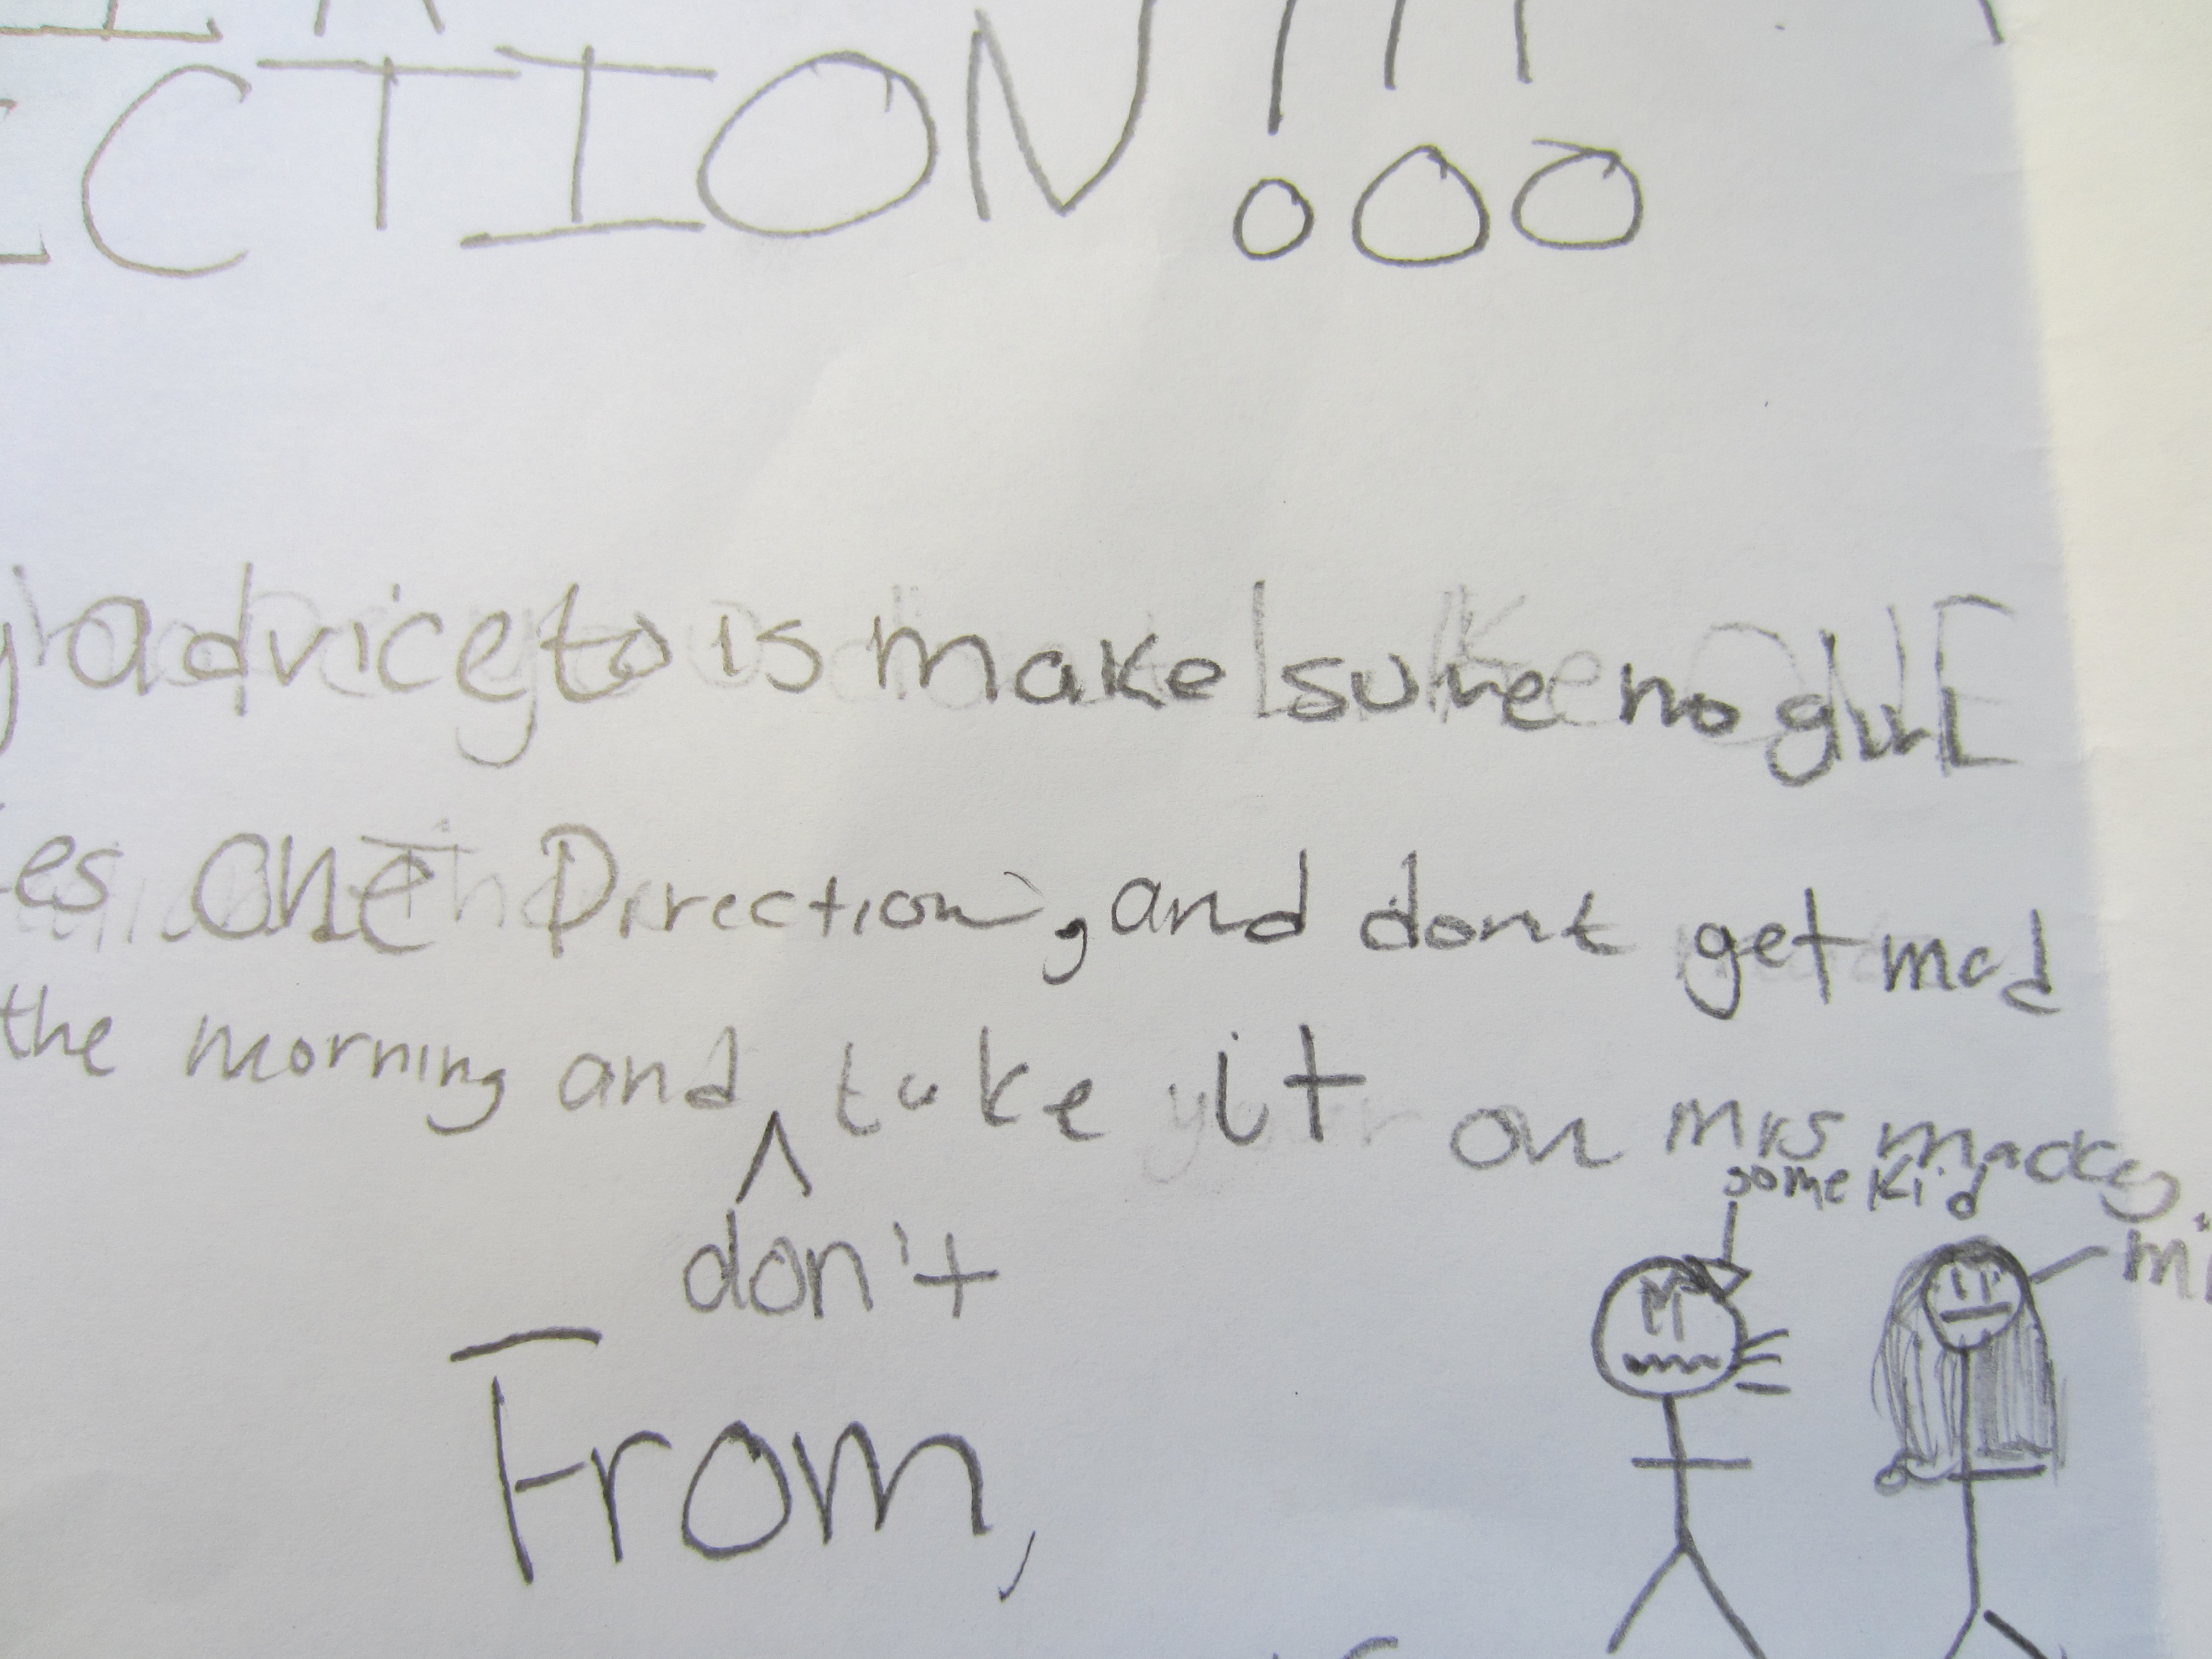 CTION!!!
advice to is make sure no girl
es one Direction, and dont get mad
the morning and take it on mrs macky
don't
some kid
From,